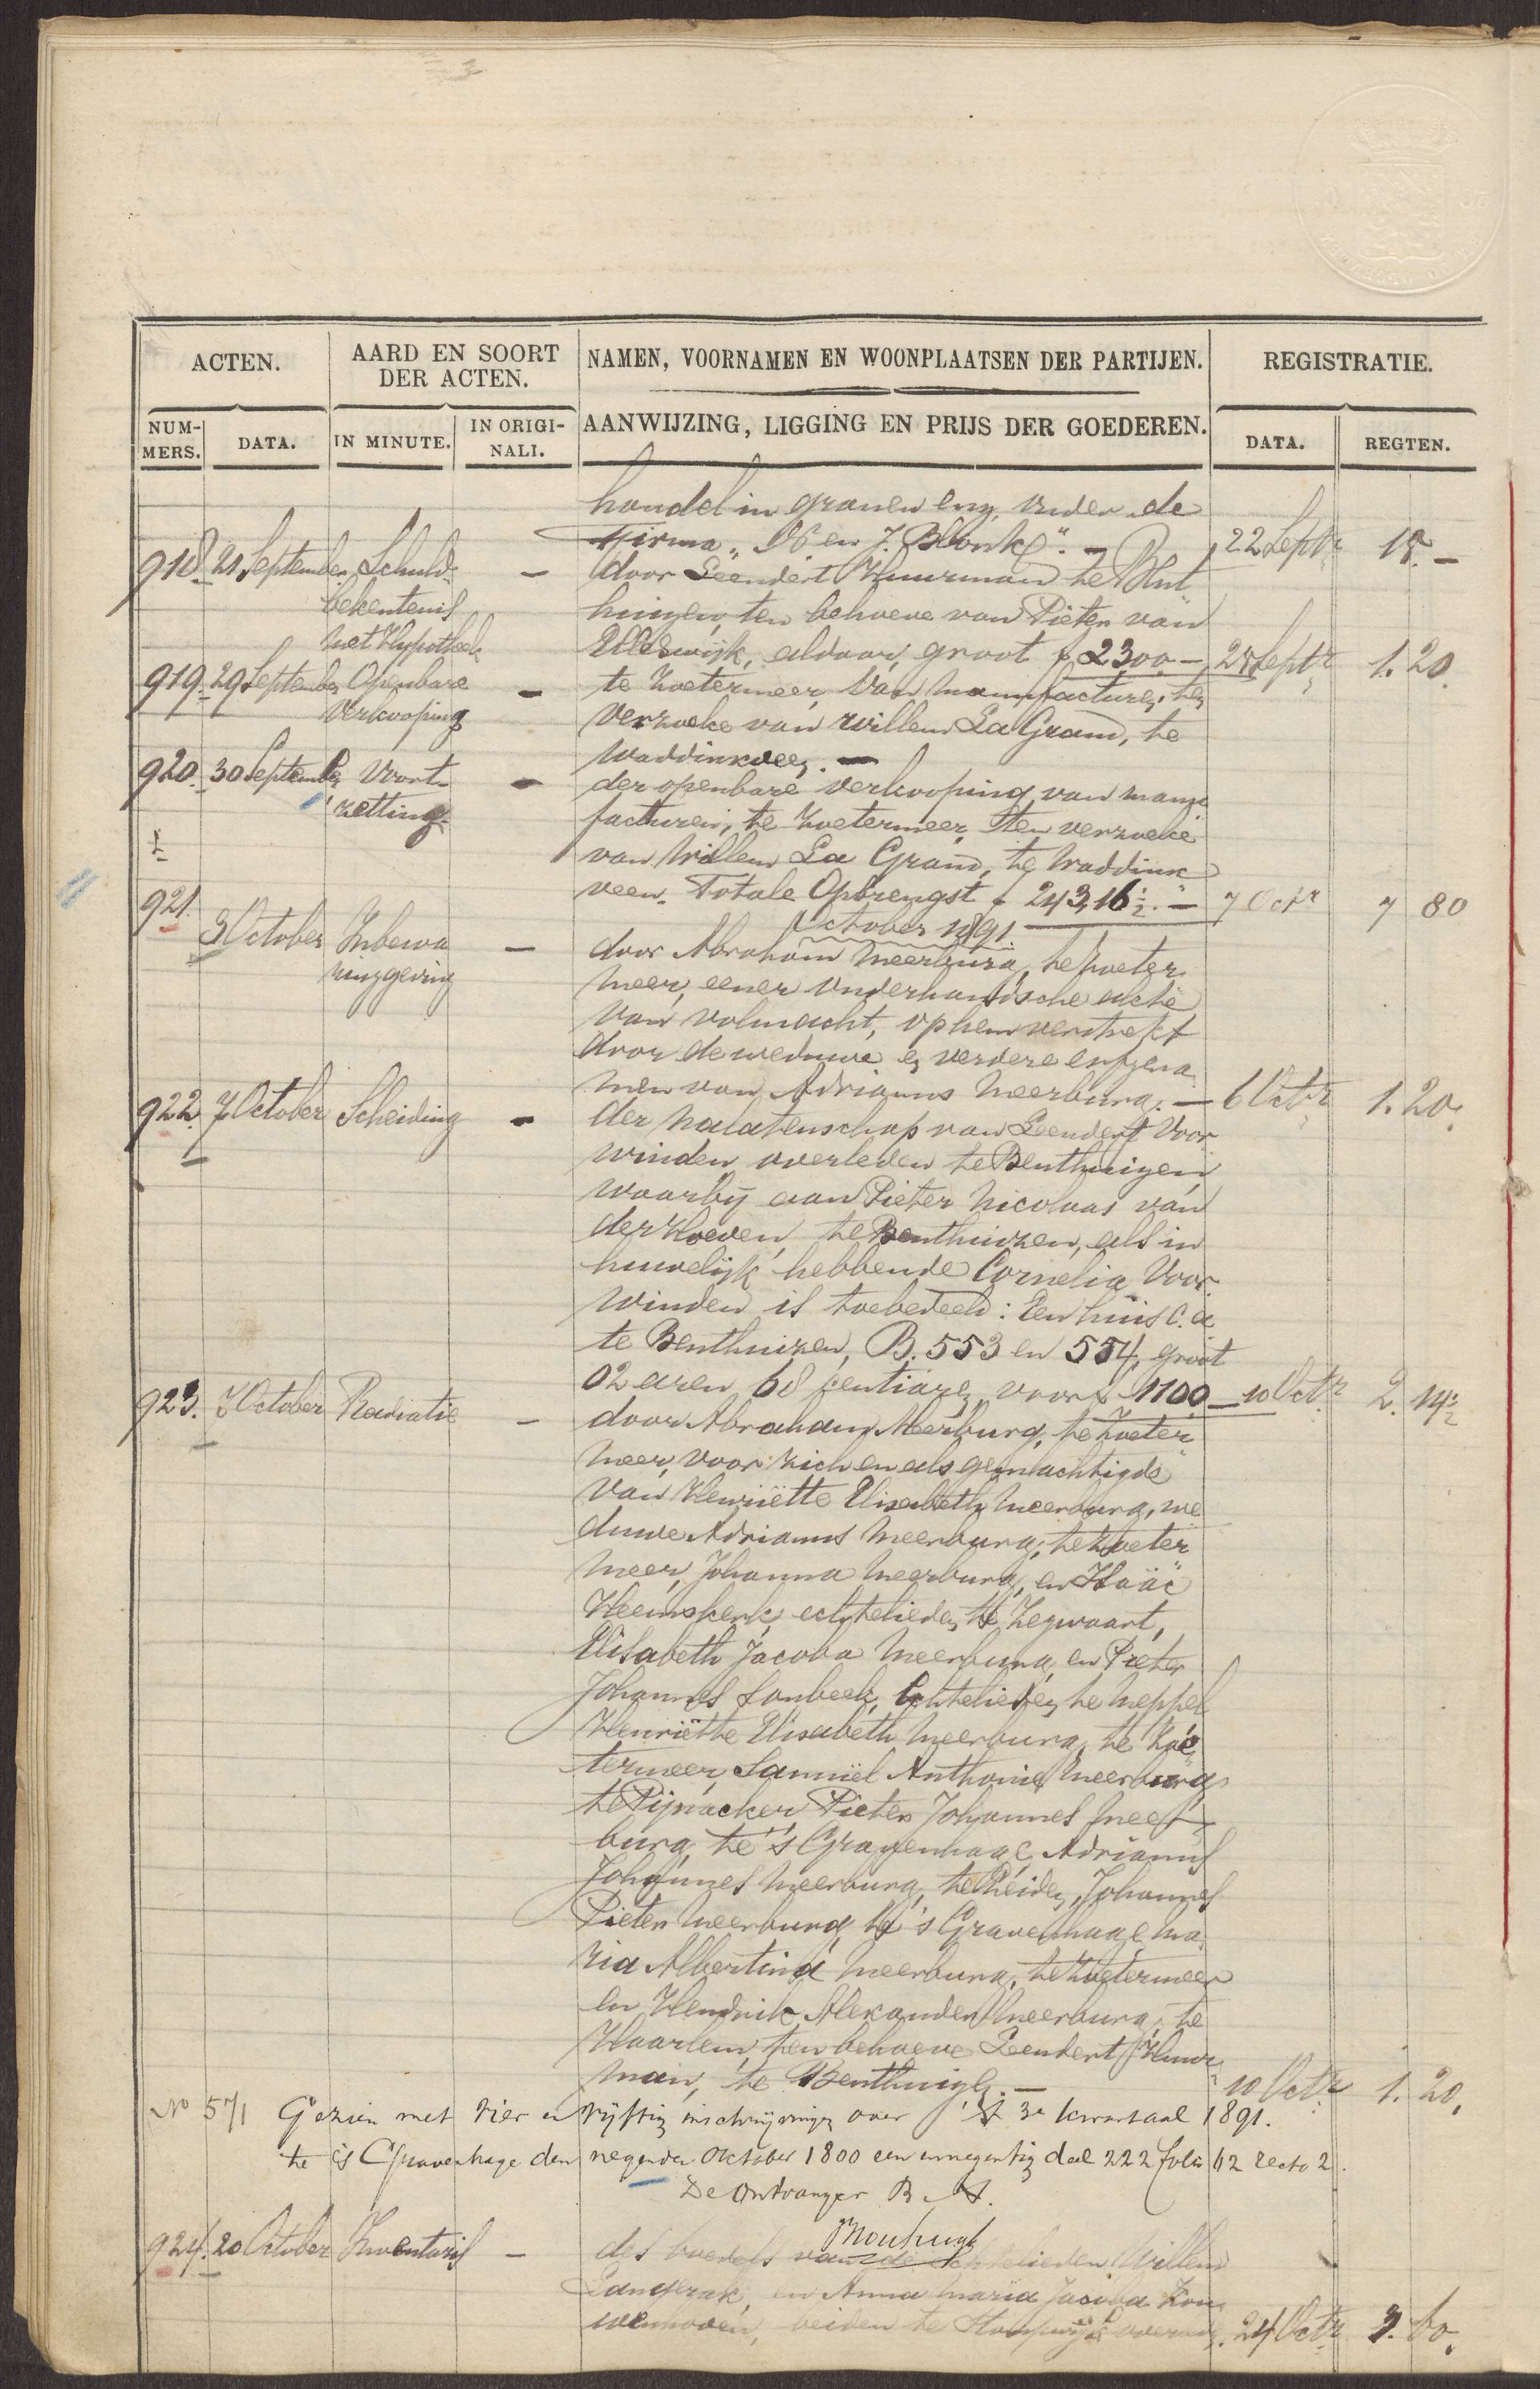 ACTEN.
AARD EN SOORT
DER ACTEN.
NAMEN, VOORNAMEN EN WOONPLAATSEN DER PARTIJEN.
REGISTRATIE.
NUM-
MERS.
DATA.
IN MINUTE.
IN ORIGI-
NALI.
AANWIJZING, LIGGING EN PRIJS DER GOEDEREN.
DATA.
REGTEN.
handel in granen enz. onder de
Firma " en J. Blonk". - 22 Septr 15. -
918. 21 September Schuld- - door Leendert Huurman te Bent
bekentenis huizen, ten behoeve van Pieter van
met Hypotheek Elleswijk, aldaar, groot f 2300 - 24 Septr 1. 20.
919. 29 September Openbare - te Zoetermeer, van manufacturen, ten
verkooping verzoeke van Willem La Grand, te
Waddinxveen. -
920. 30 September Voort- - der openbare verkooping van manu
zetting. facturen, te Zoetermeer, ten verzoeke
van Willem La Grand, te Waddinx
veen. Totale Opbrengst f 243,16½. - 7 Octr 7 80
October 1891.
921. 3 October Inbewa - door Abraham Meerburg, te Zoeter
ringgeving meer, eener onderhandsche acte
van volmacht, op hem verstrekt
door de weduwe en verdere erfgena
men van Adrianus Meerburg. - 6 Octr 1. 20.
922. 7 October Scheiding - der nalatenschap van Leendert Voor
winden, overleden te Benthuizen,
waarbij aan Pieter Nicolaas van
der Hoeven, te Benthuizen, als in
huwelijk hebbende Cornelia Voor
winden is toebedeeld: Een huis c.a.
te Benthuizen, B. 553 en 554, groot
02 aren 68 centiaren, voor f 1100 - 10 Octr 2. 14½
923. 7 October Radiatie - door Abraham Meerburg, te Zoeter
meer, voor zich en als gemachtigde
van Henriëtte Elisabeth Meerburg, we
duwe Adrianus Meerburg, te Zoeter
meer, Johanna Meerburg, en Isaäc
Heemskerk, echtelieden, te Zegwaart,
Elisabeth Jacoba Meerburg en Pieter
Johannes Sonbeek, Echtelieden, te Meppel
Henriëtte Elisabeth Meerburg, te Zoe
termeer, Samuël Anthonie Meerburg
te Pijnacker, Pieter Johannes Meer
burg, te 's Gravenhage, Adrianus
Johannes Meerburg, te Leiden, Johannes
Pieter Meerburg, te 's Gravenhage, Ma
ria Albertina Meerburg, te Zoetermeer
en Hendrik Alexander Meerburg, te
Haarlem, ten behoeve Leendert Huur
man, te Benthuizen. - 10 Octr 1. 20.
No 571 Gezien met vier en vijftig inschrijvingen over het 3e kwartaal 1891.
te 's Gravenhage den negenden October 1800 een en negentig deel 222 folio 62 recto 2.
De Ontvanger B. A.
Mouhuyl
924. 20 October Inventaris - des boedels van de Echtelieden Willem
Langerak, en Anna Maria Jacoba Kou
wenhoven, beiden te Stompwijk overleden. 24 Octr 3. 60.